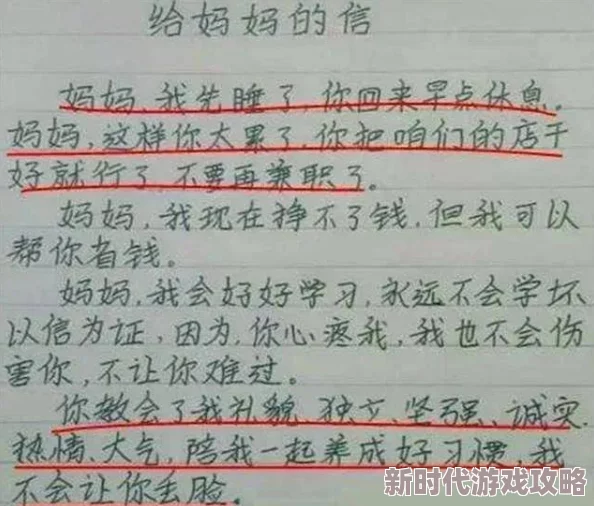 给妈妈的信
妈妈、我先睡了,你回来早点休息。
妈妈,这样你太累了,你把咱们的店干
好就行了,不要再兼职了。
妈妈,我现在挣不了钱,但我可以
帮你省钱。
妈妈,我会好好学习,永远不会学坏
以信为证,因为,你心疼我,我也不会伤
害你,不让你难过。
你教会了我礼貌、独立、坚强、诚实、
热情、大气,陪我一起养成好习惯,我
不会让你丢脸。
新时代游戏攻略